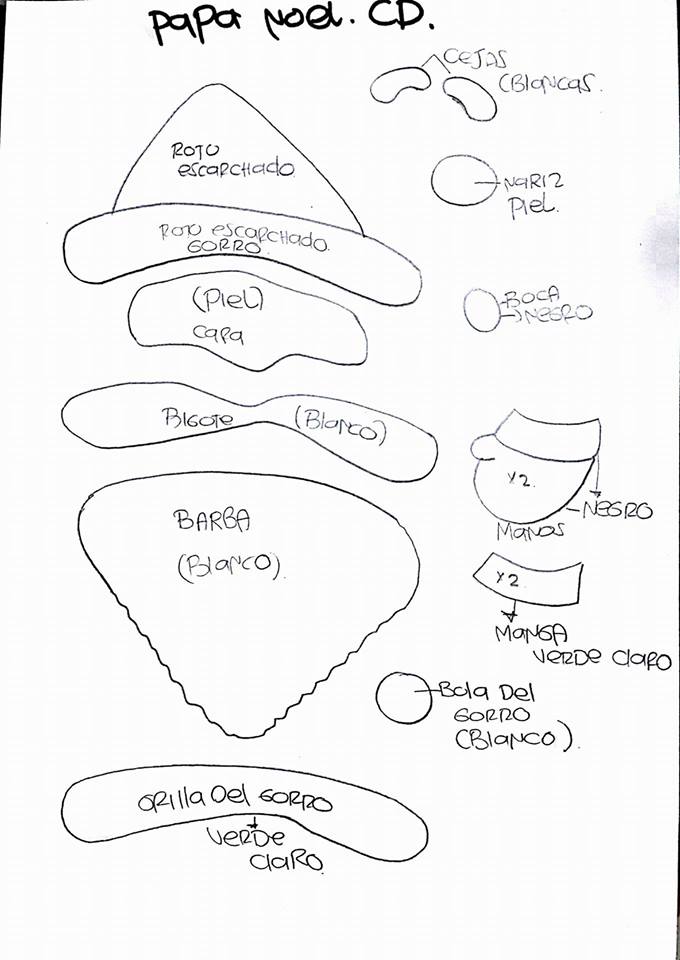 PAPA NOEL. CD.
CEJAS
(BLANCAS.
ROJO
ESCARCHADO
NARIZ
PIEL.
ROJO ESCARCHADO.
GORRO
(PIEL)
CAPA
BOCA
NEGRO
BIGOTE (BLANCO)
X2.
NEGRO
MANOS
BARBA
(BLANCO).
X2
MANGA
VERDE CLARO
BOLA DEL
GORRO
(BLANCO).
ORILLA DEL GORRO
VERDE
CLARO.